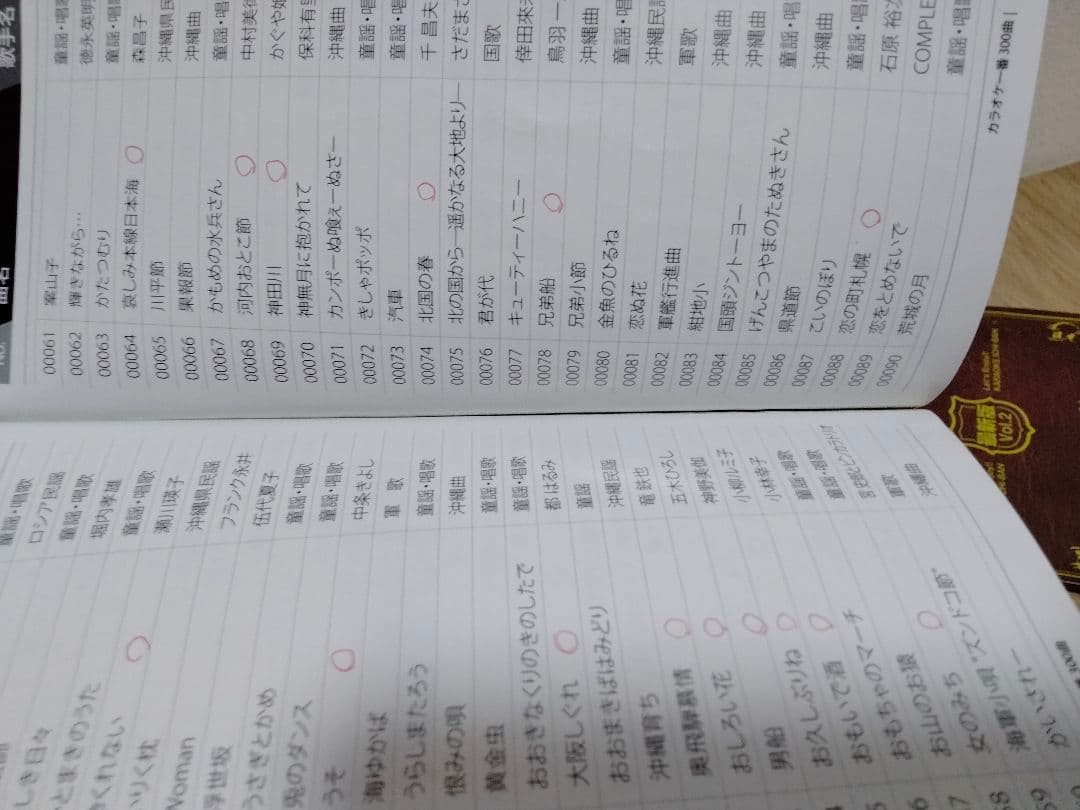 しき日々 ロシア民謡
とまきのうた 童謡・唱歌
くれない 堀内孝雄
童謡・唱歌
くれ枕 瀬川瑛子
沖縄県民謡
Woman フランク永井
浮世坂 伍代夏子
うさぎとかめ 童謡・唱歌
兎のダンス 童謡・唱歌
うそ 中条きよし
海ゆかば 軍 歌
うらしまたろう 童謡・唱歌
恨みの唄 沖縄曲
黄金虫 童謡・唱歌
おおきなくりのきのしたで 童謡・唱歌
大阪しぐれ 都 はるみ
おおまきばはみどり 童謡
沖縄育ち 沖縄民謡
奥飛騨慕情 竜 鉄也
おしろい花 五木ひろし
男船 神野美伽
お久しぶりね 小柳ルミ子
おもいで酒 小林幸子
おもちゃのマーチ 童謡・唱歌
お山のお猿 童謡・唱歌
女のみち 宮史郎とピンカラトリオ
海軍小唄"ズンドコ節" 軍歌
かいされー 沖縄曲
No. 曲名 歌手名
00061 案山子 童謡・唱歌
00062 輝きながら… 徳永英明
00063 かたつむり 童謡・唱歌
00064 哀しみ本線日本海 森昌子
00065 川平節 沖縄県民
00066 果報節 沖縄曲
00067 かもめの水兵さん 童謡・唱
00068 河内おとこ節 中村美律
00069 神田川 かぐや姫
00070 神無月に抱かれて 保科有里
00071 カンポーぬ喰ぇーぬさー 沖縄曲
00072 きしゃポッポ 童謡・唱
00073 汽車 童謡・唱
00074 北国の春 千 昌夫
00075 北の国から 遥かなる大地より― さだまさ
00076 君が代 国歌
00077 キューティーハニー 倖田來未
00078 兄弟船 鳥羽 一
00079 兄弟小節 沖縄曲
00080 金魚のひるね 童謡・唱
00081 恋ぬ花 沖縄民謡
00082 軍艦行進曲 軍歌
00083 紺地小 沖縄曲
00084 国頭ジントーヨー 沖縄曲
00085 げんこつやまのたぬきさん 童謡・唱
00086 県道節 沖縄曲
00087 こいのぼり 童謡・唱歌
00088 恋の町札幌 石原 裕次
00089 恋をとめないで COMPLE
00090 荒城の月 童謡・唱歌
カラオケ一番 300曲
最新版
Vol.2